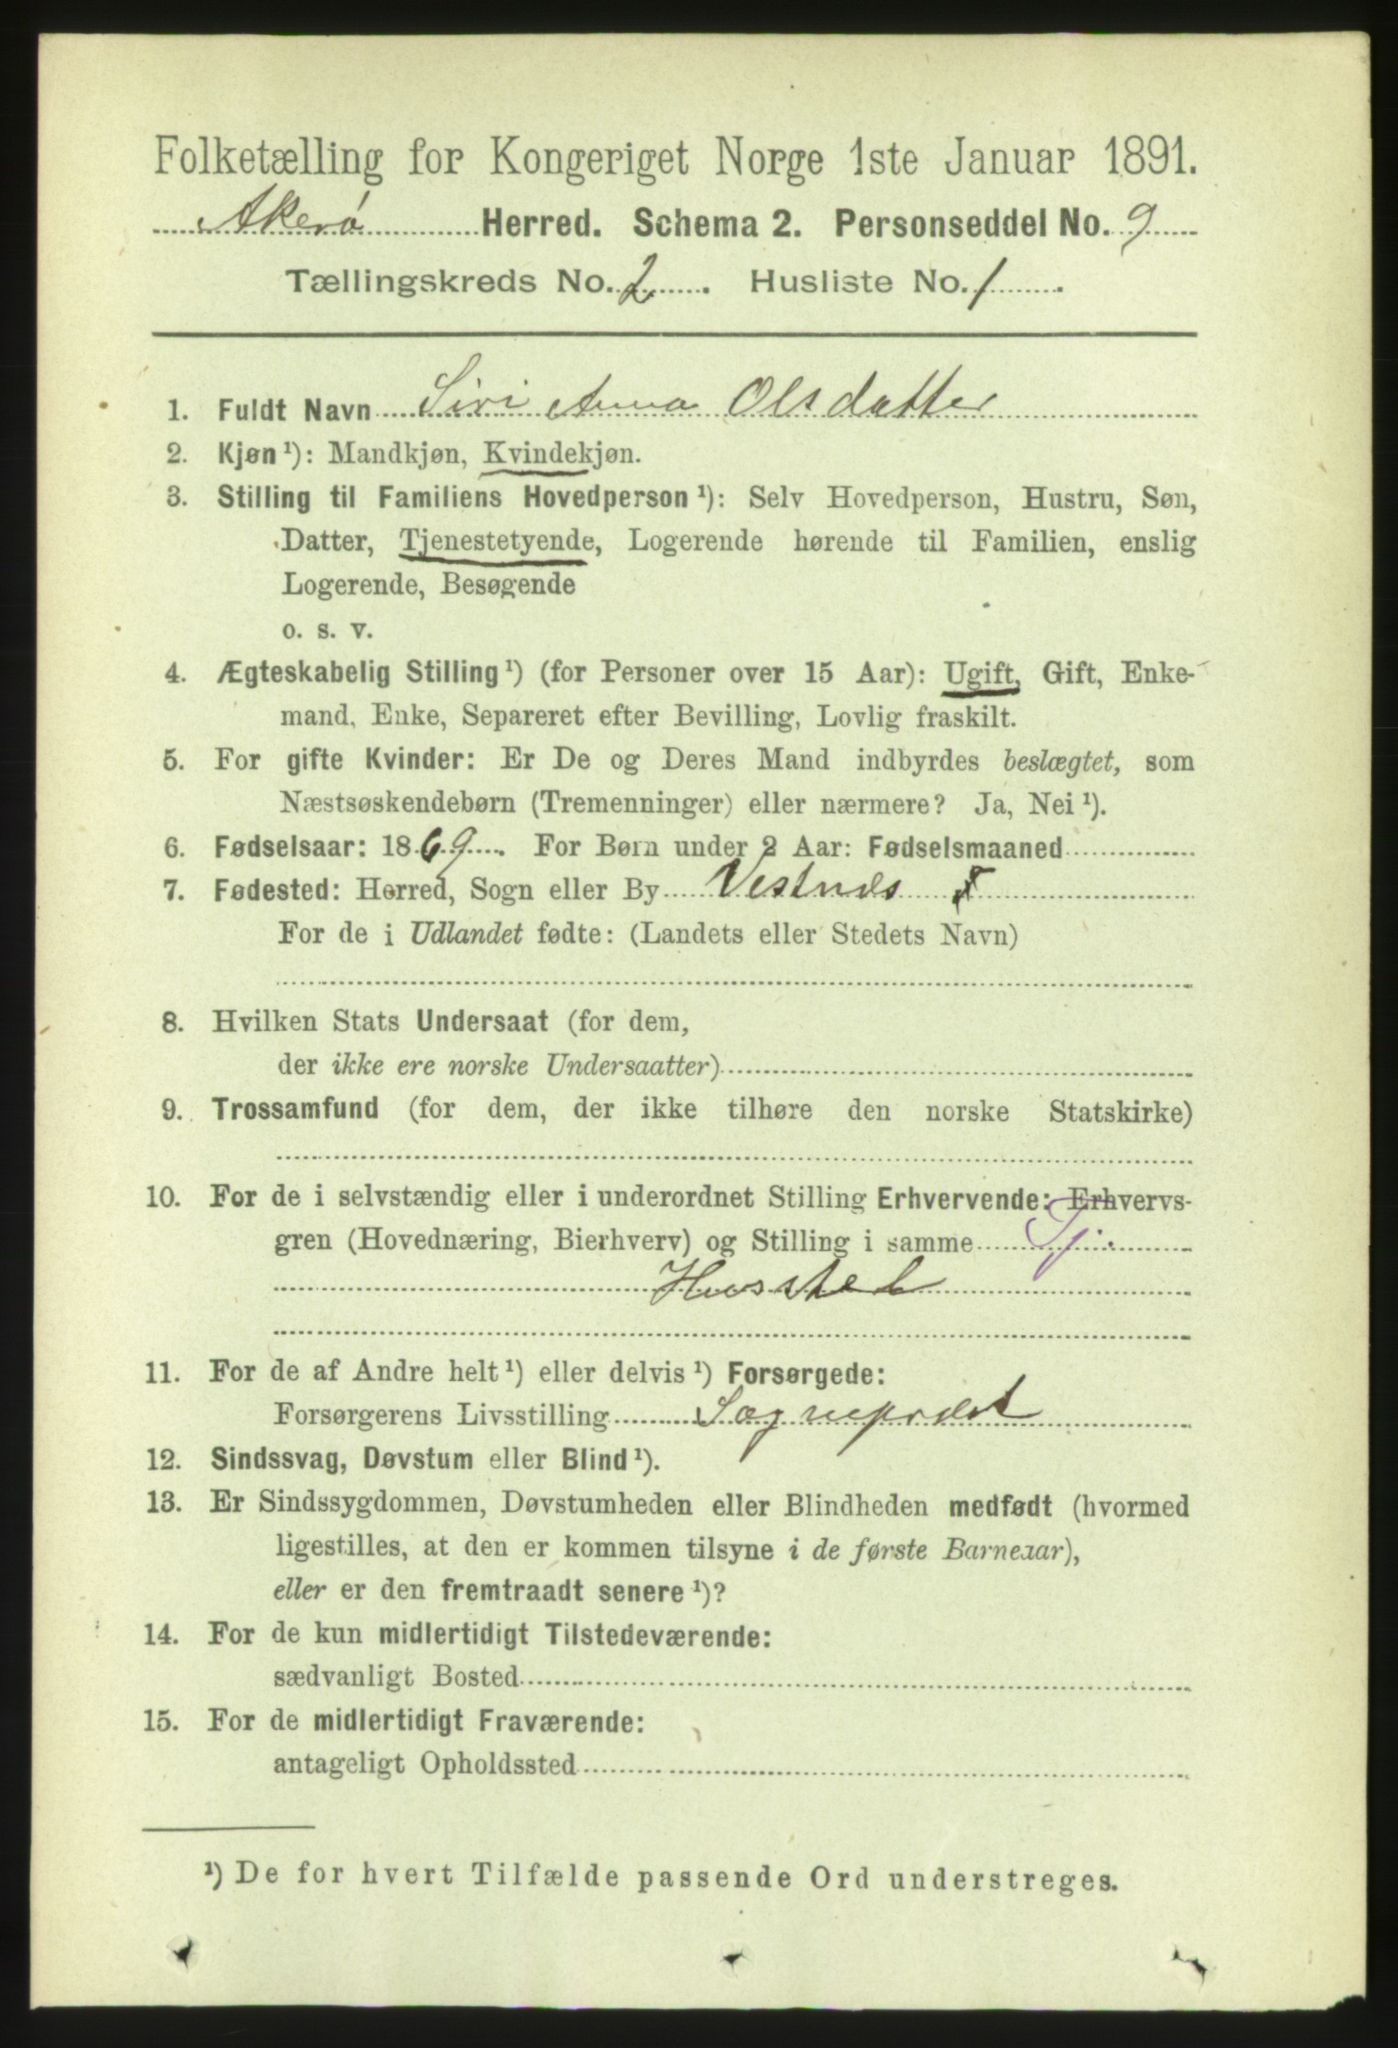 Folketælling for Kongeriget Norge 1ste Januar 1891.
Akerø Herred. Schema 2. Personseddel No. 9
Tællingskreds No. 2. Husliste No. 1.
1. Fuldt Navn Sivi Anna Olsdatter
2. Kjøn¹): Mandkjøn, Kvindekjøn.
3. Stilling til Familiens Hovedperson¹): Selv Hovedperson, Hustru, Søn,
Datter, Tjenestetyende, Logerende hørende til Familien, enslig
Logerende, Besøgende
o. s. v.
4. Ægteskabelig Stilling¹) (for Personer over 15 Aar): Ugift, Gift, Enke-
mand, Enke, Separeret efter Bevilling, Lovlig fraskilt.
5. For gifte Kvinder: Er De og Deres Mand indbyrdes beslægtet, som
Næstsøskendebørn (Tremenninger) eller nærmere? Ja, Nei¹).
6. Fødselsaar: 1869. For Børn under 2 Aar: Fødselsmaaned
7. Fødested: Herred, Sogn eller By Vestnæs
For de i Udlandet fødte: (Landets eller Stedets Navn)
8. Hvilken Stats Undersaat (for dem,
der ikke ere norske Undersaatter)
9. Trossamfund (for dem, der ikke tilhøre den norske Statskirke)
10. For de i selvstændig eller i underordnet Stilling Erhvervende: Erhvervs-
gren (Hovednæring, Bierhverv) og Stilling i samme Tj.
Husstel
11. For de af Andre helt¹) eller delvis¹) Forsørgede:
Forsørgerens Livsstilling Sognepræst
12. Sindssvag, Døvstum eller Blind¹).
13. Er Sindssygdommen, Døvstumheden eller Blindheden medfødt (hvormed
ligestilles, at den er kommen tilsyne i de første Barneaar),
eller er den fremtraadt senere¹)?
14. For de kun midlertidigt Tilstedeværende:
sædvanligt Bosted
15. For de midlertidigt Fraværende:
antageligt Opholdssted
¹) De for hvert Tilfælde passende Ord understreges.